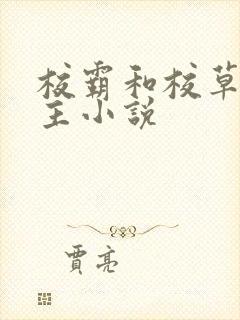 校霸和校草
主小説
賈亮